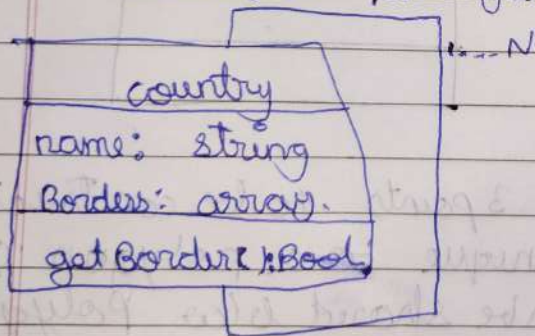 1....N
country
name: string
Borders: array.
getBorder():Bool